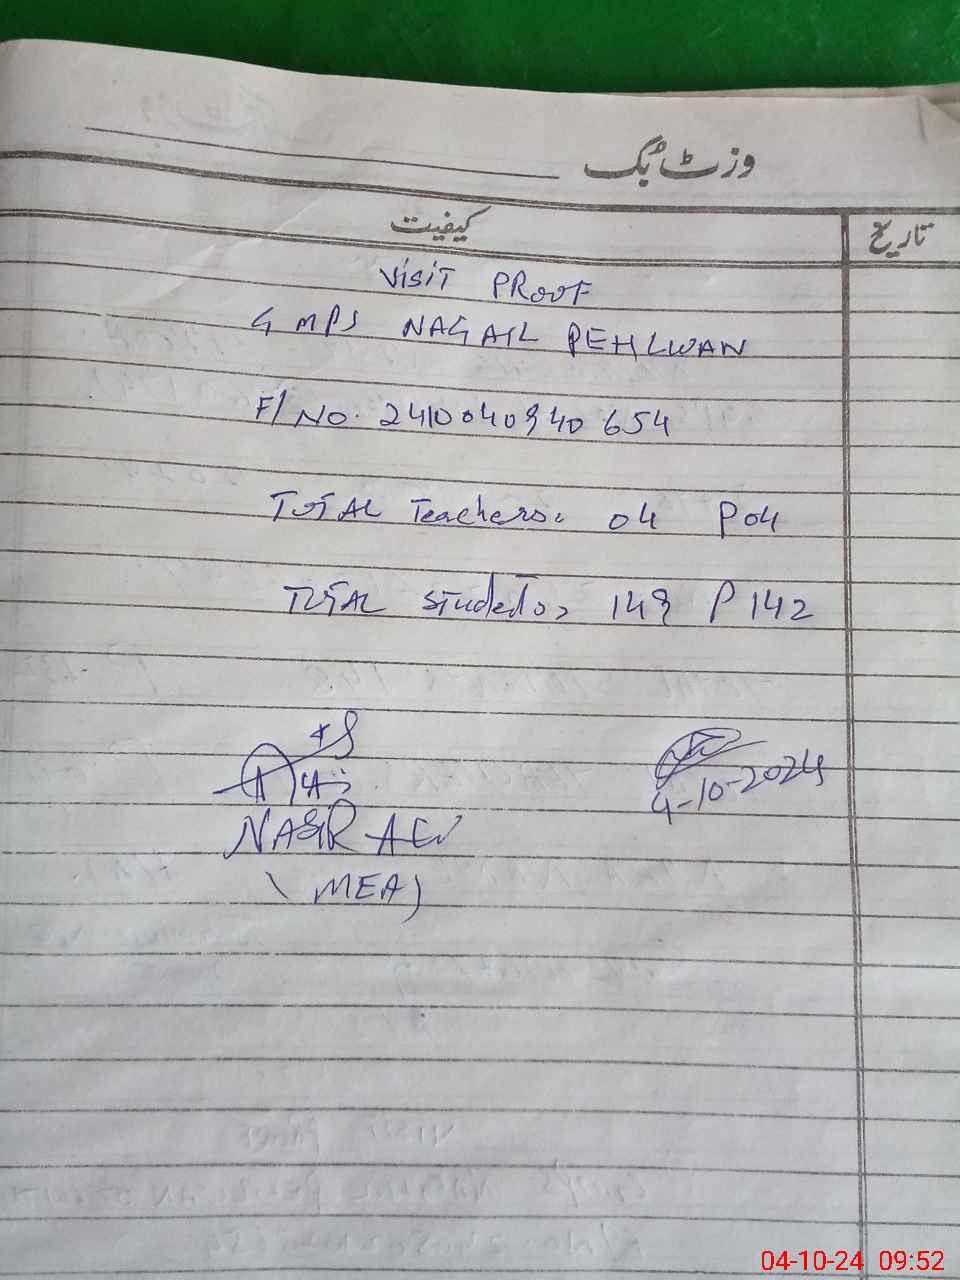 وزٹ بُک
کیفیت
تاریخ
VISIT PROOF
G MPS NAGAIL PEHLWAN
F/NO. 2410040940654
TOTAL Teachers: 04 P04
TOTAL students, 149 P 142
4-10-2024
NASIR ALI
(MEA)
04-10-24 09:52